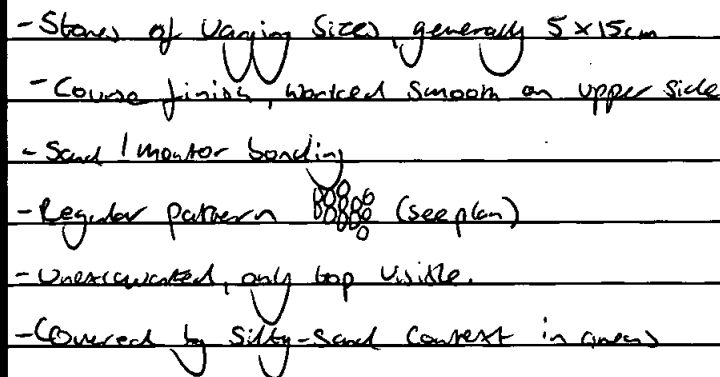 - Stones of varying sizes, generally 5x15cm
- Course finish, worked smooth on upper side
- Sand / mortor bonding
- Regular pattern (see plan)
- Unexcavated, only top visible.
- Covered by silty-sand context in areas